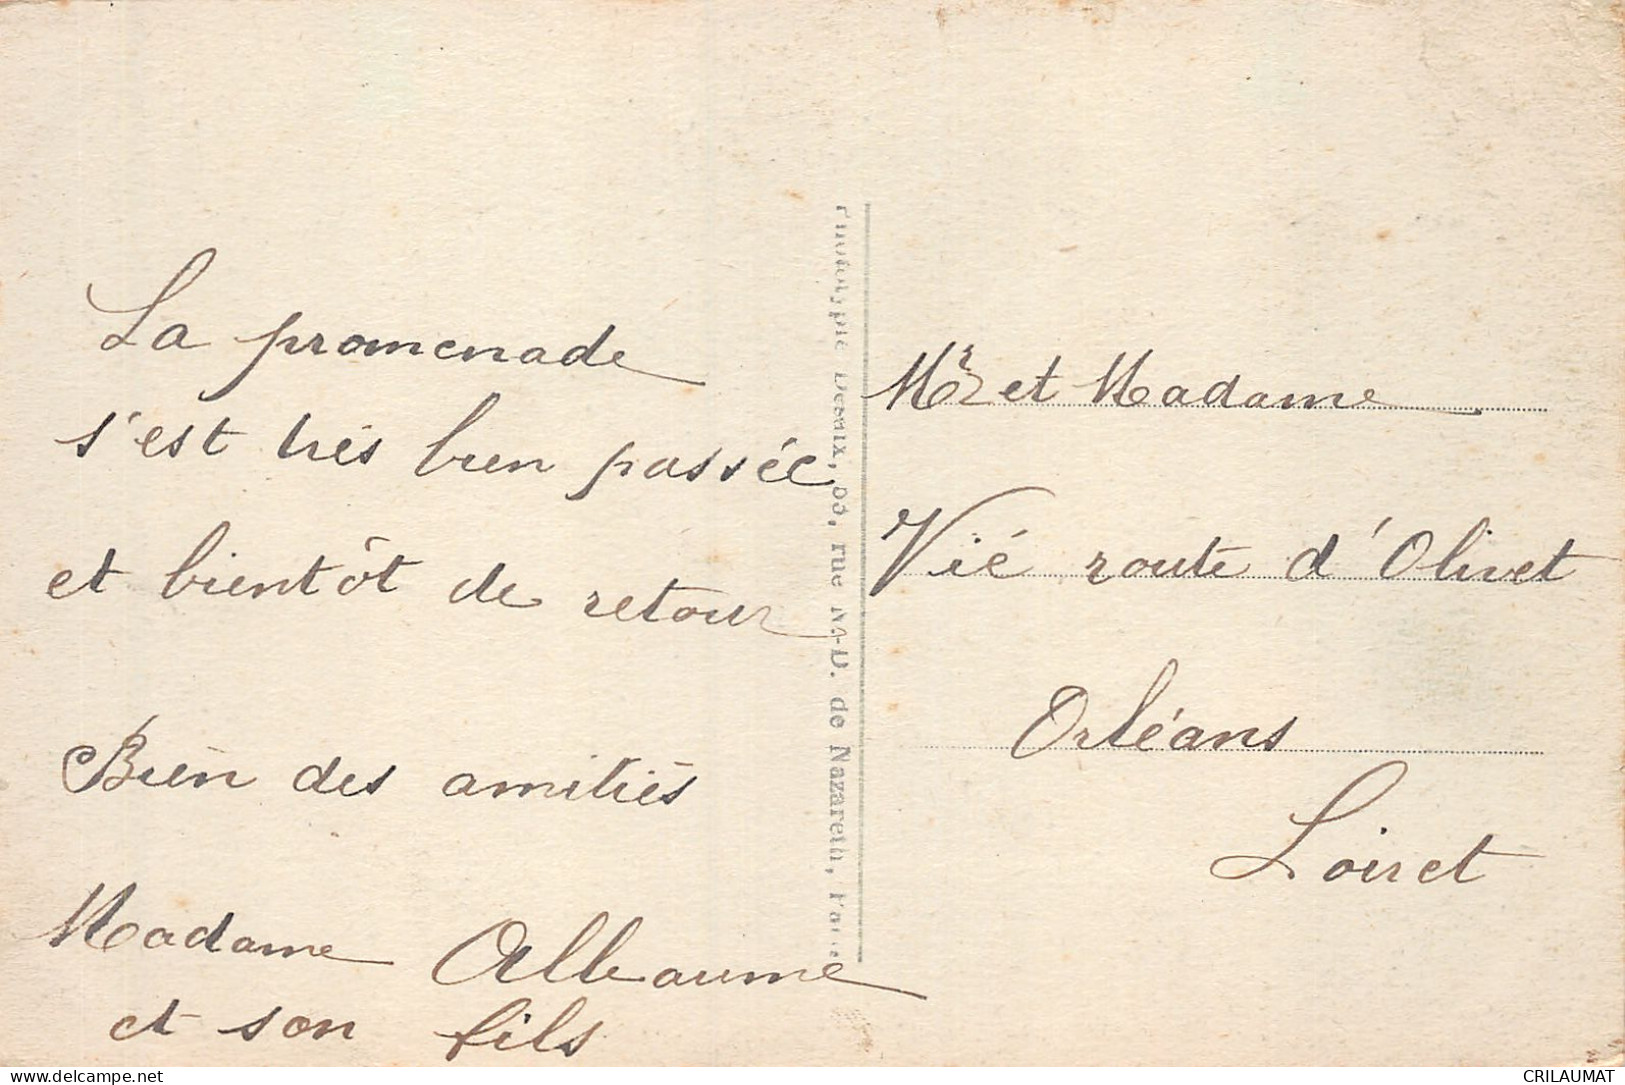 La promenade
s'est très bien passée
et bientôt de retour
Bien des amitiés
Madame Alleaume
et son fils
Phototypie Desaix, rue N.-D. de Nazareth, Paris
Mr et Madame
Vié route d'Olivet
Orléans
Loiret
delcampe.net
CRILAUMAT